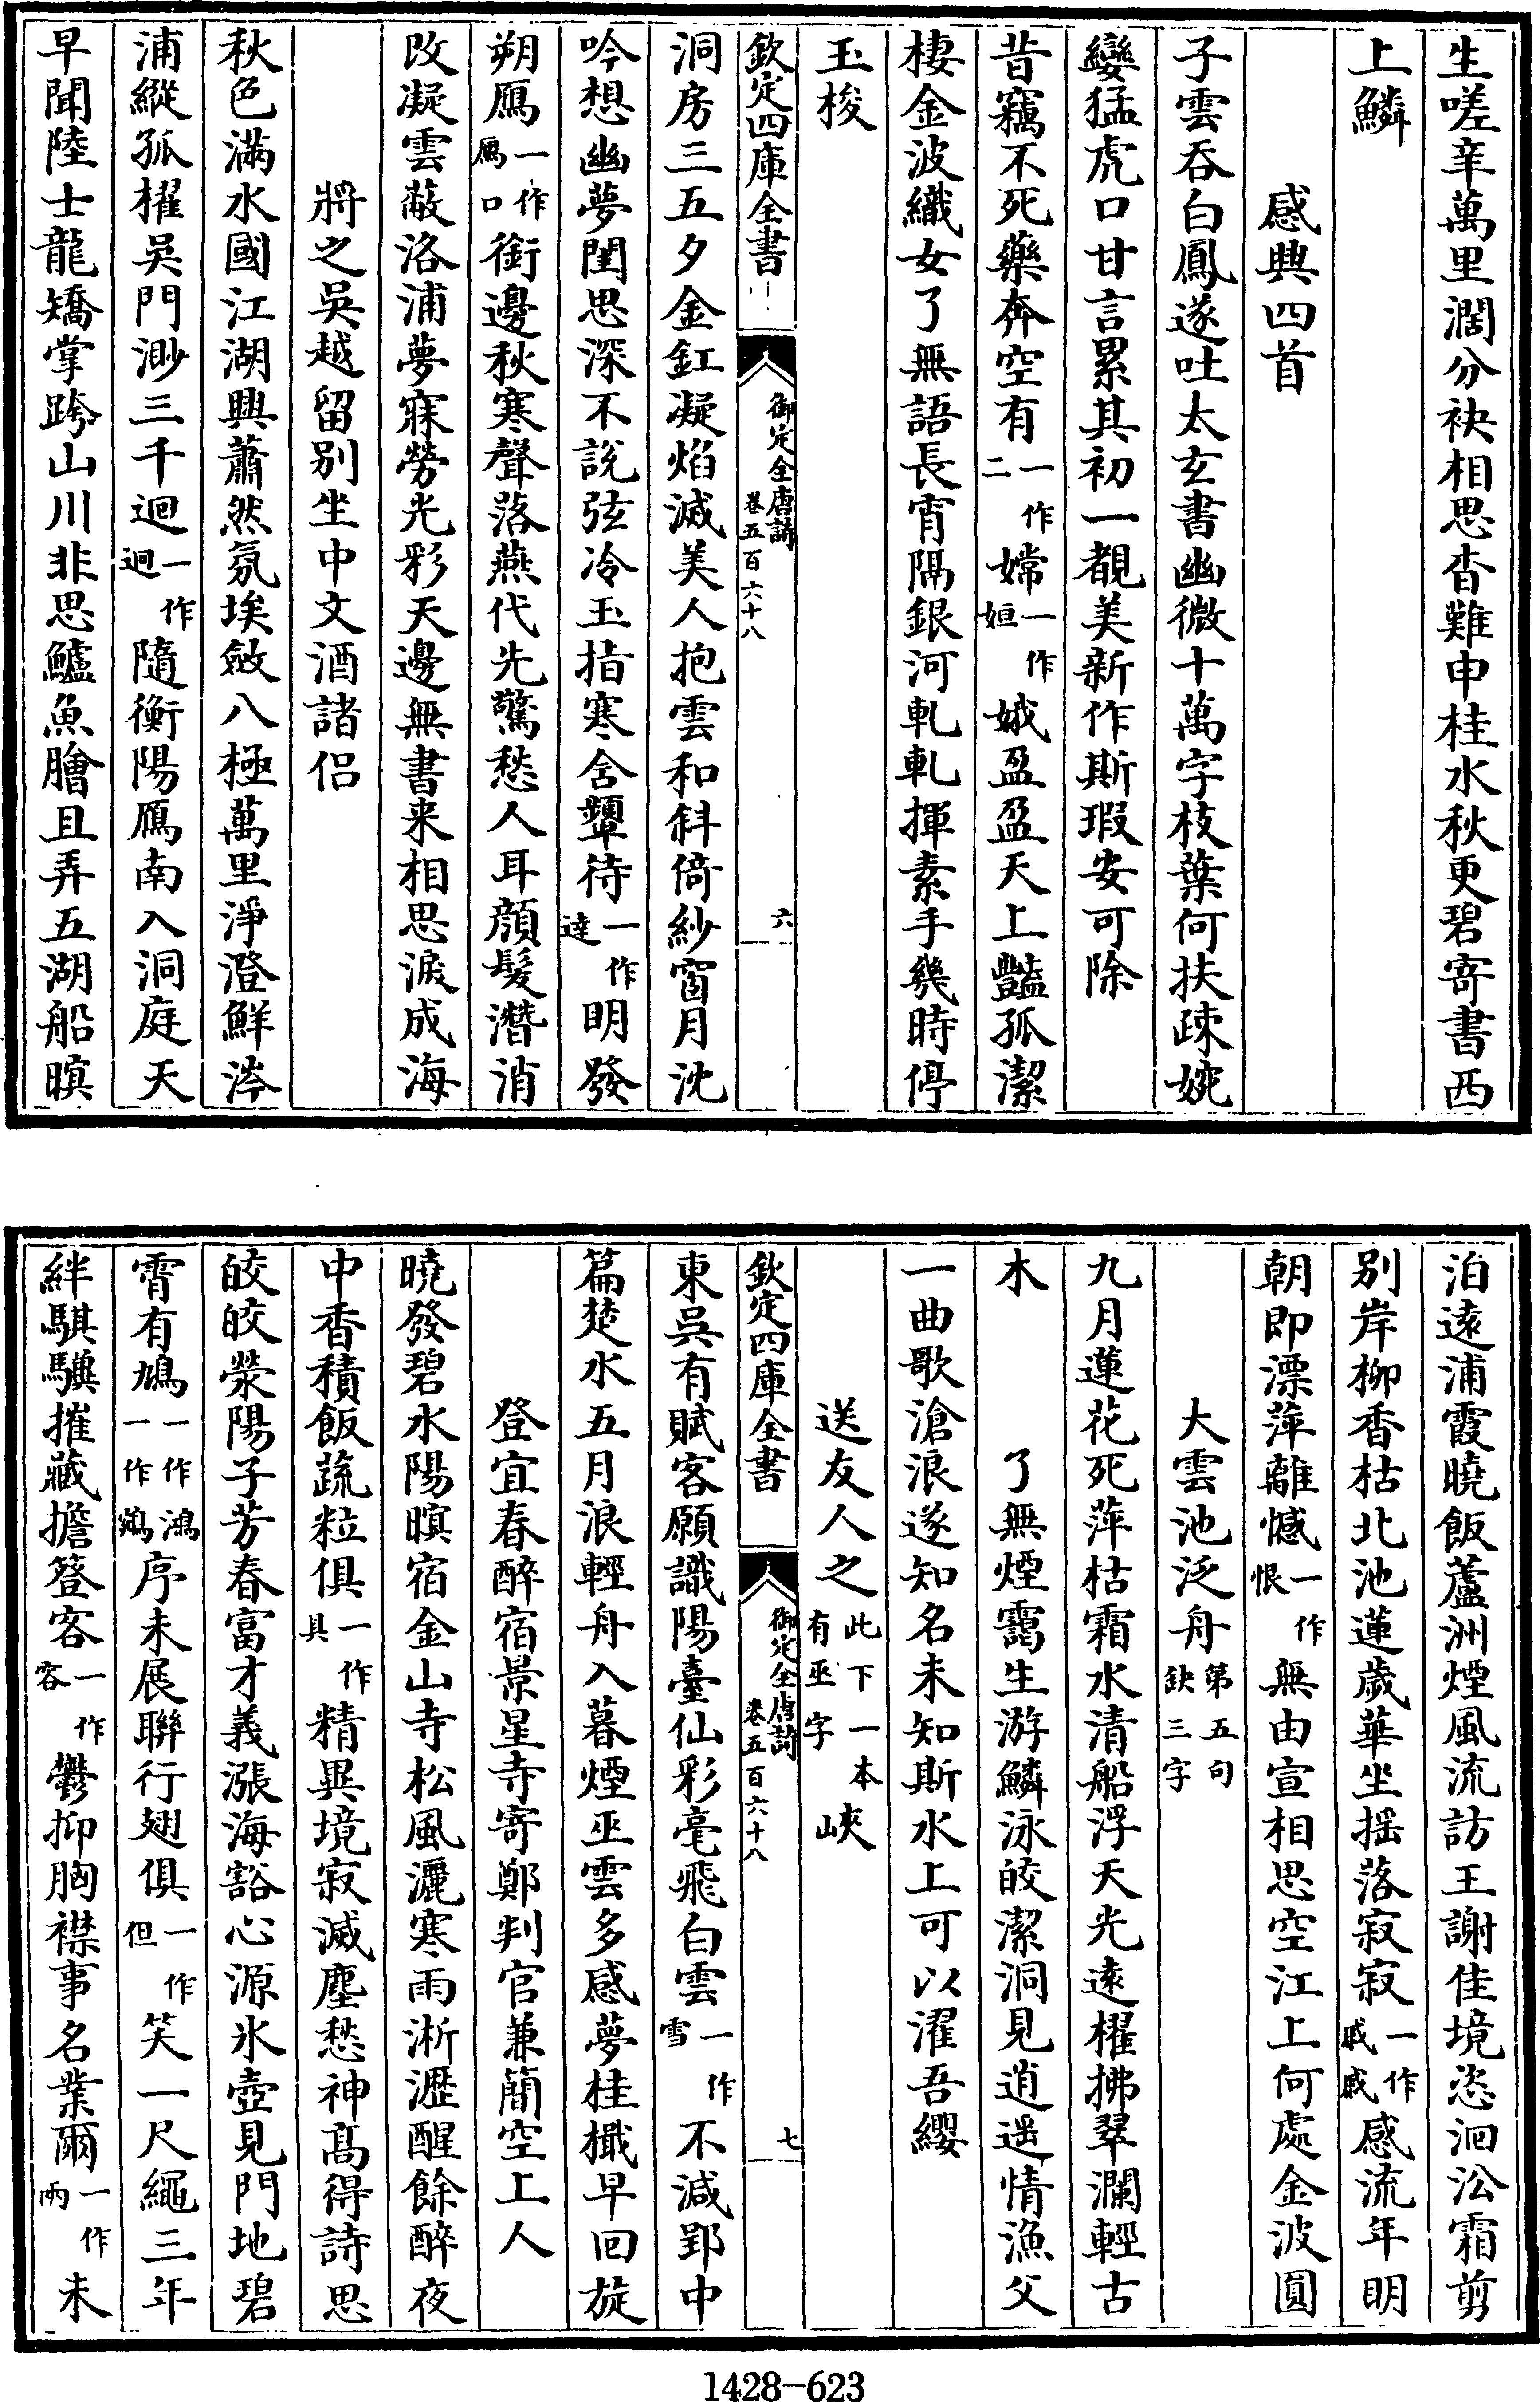 生嗟辛萬里濶分袂相思杳難申桂水秋更碧寄書西
上鱗
感興四首
子雲吞白鳳遂吐太玄書幽微十萬字枝葉何扶疎婉
孌猛虎口甘言累其初一覩美新作斯瑕安可除
昔竊不死藥奔空有一作二嫦一作姮娥盈盈天上豔孤潔
棲金波織女了無語長宵隔銀河軋軋揮素手幾時停
玉梭
欽定四庫全書 御定全唐詩卷五百六十八 六
洞房三五夕金釭凝焰滅美人抱雲和斜倚紗窗月沈
吟想幽夢閨思深不說弦冷玉指寒含顰待一作達明發
朔鴈一作鴈口銜邊秋寒聲落燕代先驚愁人耳顔髮潛消
改凝雲蔽洛浦夢寐勞光彩天邊無書来相思淚成海
將之吳越留別坐中文酒諸侶
秋色滿水國江湖興蕭然氛埃斂八極萬里淨澄鮮涔
浦縱孤櫂吳門渺三千迴一作迥隨衡陽鴈南入洞庭天
早聞陸士龍矯掌跨山川非思鱸魚膾且弄五湖船暝
泊遠浦霞曉飯蘆洲煙風流訪王謝佳境恣洄沿霜剪
別岸柳香枯北池蓮歲華坐揺落寂寂一作戚戚感流年明
朝即漂萍離憾一作恨無由宣相思空江上何處金波圓
大雲池泛舟第五句缺三字
九月蓮花死萍枯霜水清船浮天光遠櫂拂翠瀾輕古
木 了無煙靄生游鱗泳皎潔洞見逍遥情漁父
一曲歌滄浪遂知名未知斯水上可以濯吾纓
送友人之此下一本有巫字峽
欽定四庫全書 御定全唐詩卷五百六十八 七
東吳有賦客願識陽臺仙彩毫飛白雲一作雪不減郢中
篇楚水五月浪輕舟入暮煙巫雲多感夢桂檝早回旋
登宜春醉宿景星寺寄鄭判官兼簡空上人
曉發碧水陽暝宿金山寺松風灑寒雨淅瀝醒餘醉夜
中香積飯蔬粒俱一作具精異境寂滅塵愁神髙得詩思
皎皎滎陽子芳春富才義漲海豁心源氷壺見門地碧
霄有鳩一作鴻一作鵷序未展聯行翅俱一作但笑一尺繩三年
絆騏驥摧藏擔簦客一作容鬱抑胸襟事名業爾一作兩未
1428–623